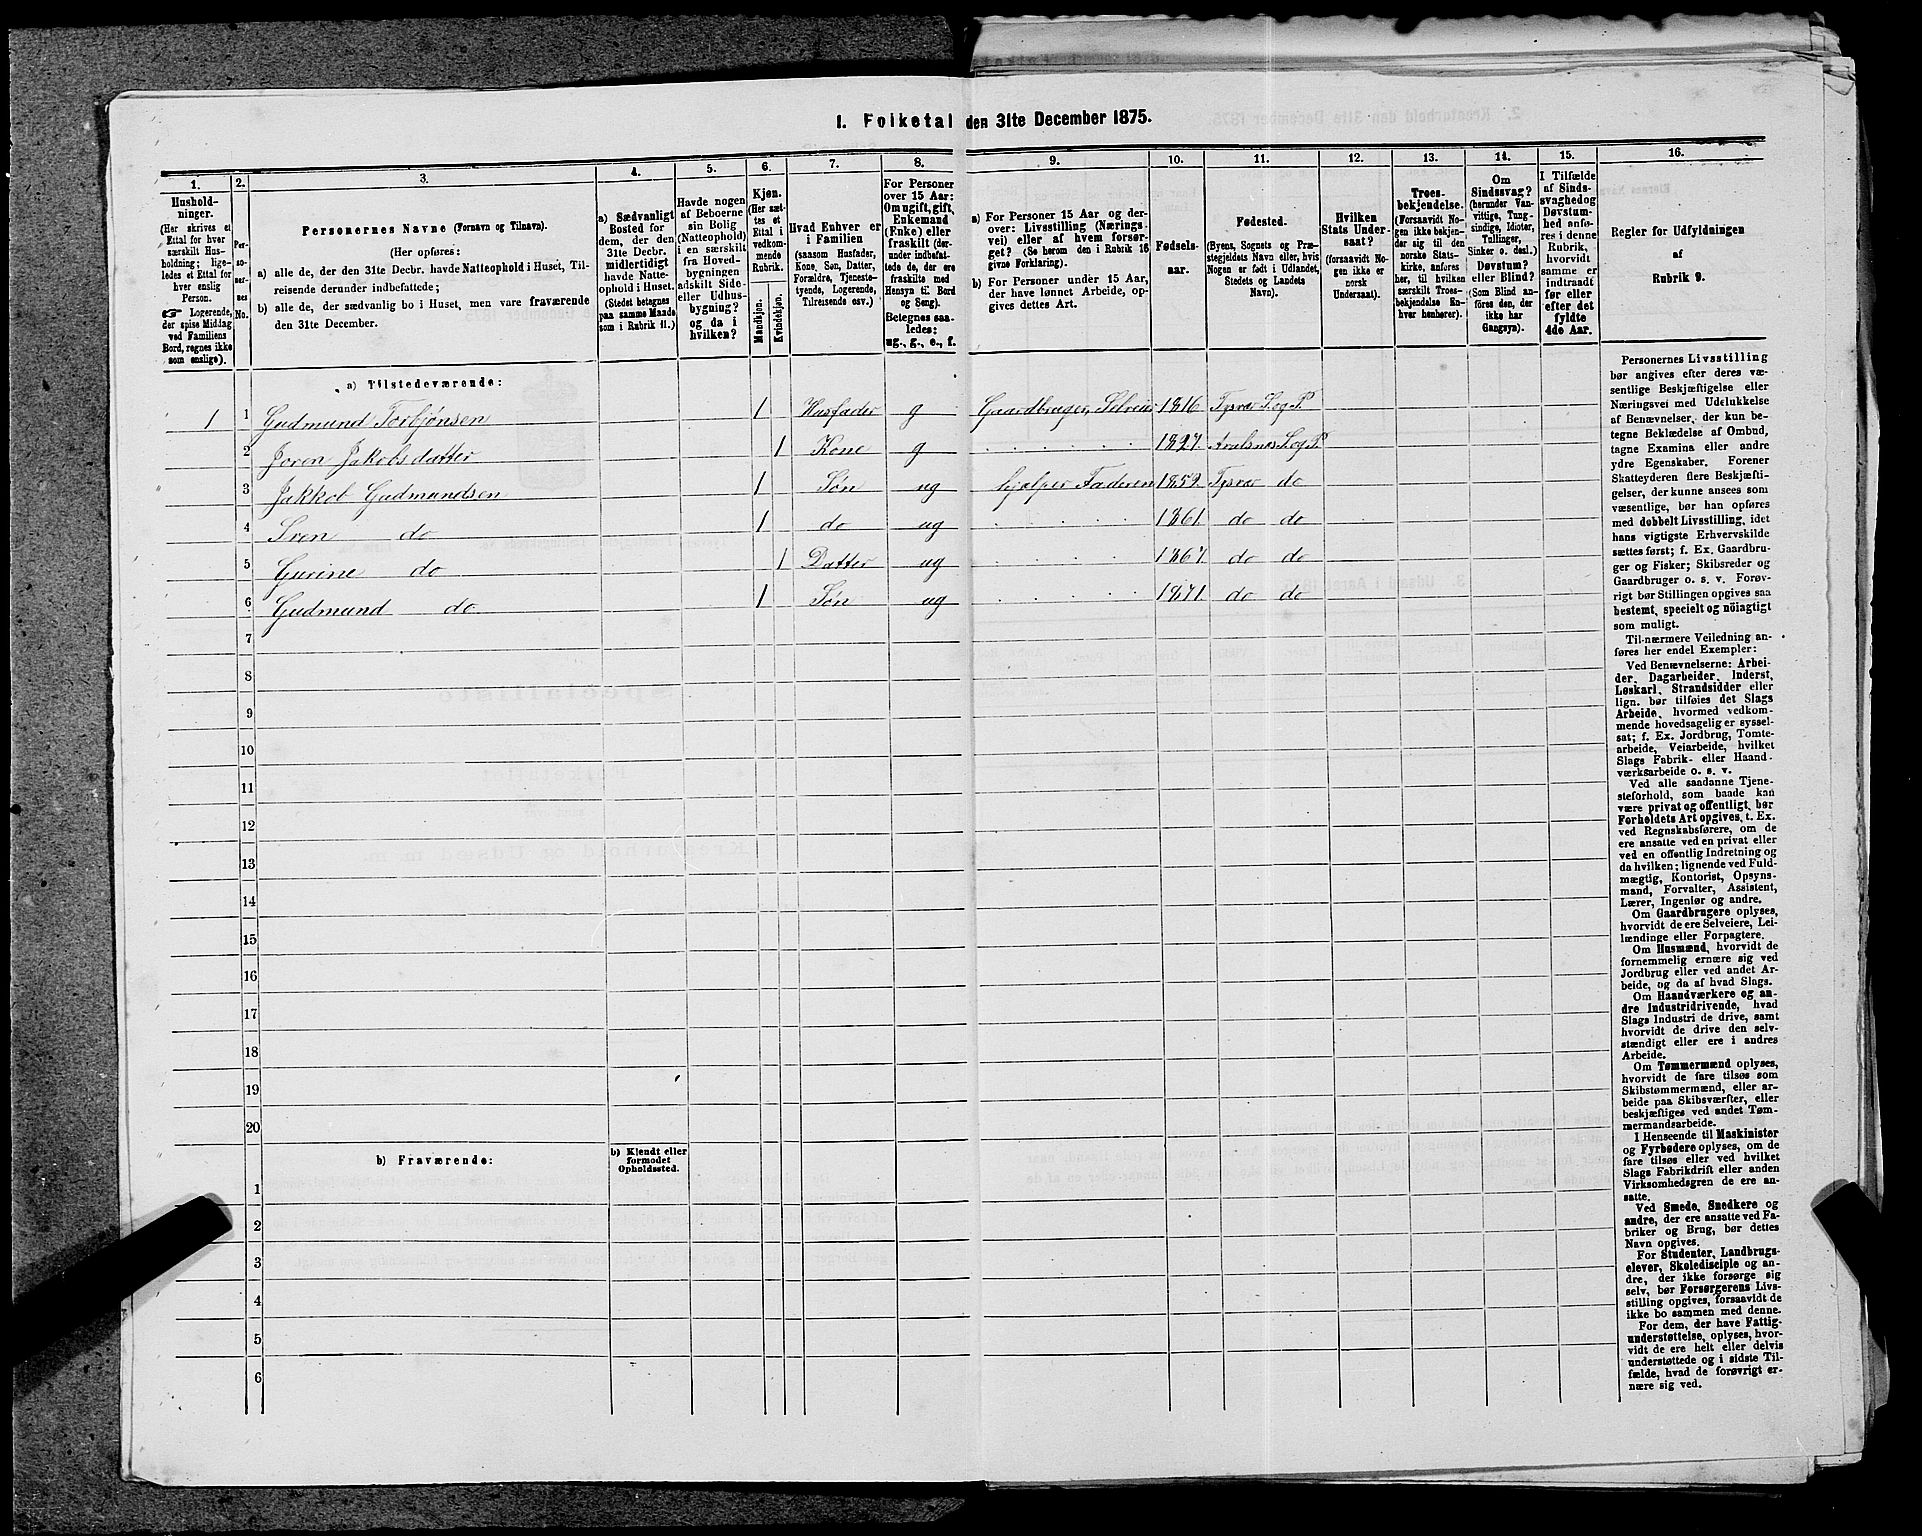 1. Folketal den 31te December 1875.
1. 2. 3. 4. 5. 6. 7. 8. 9. 10. 11. 12. 13. 14. 15. 16.
Hushold-
ninger.
(Her skrives et
Ettal for hver
særskilt Hus-
holdning; lige-
ledes et Ettal for
hver enslig
Person.
☞ Logerende,
der spise Middag
ved Familiens
Bord, regnes ikke
som enslige).
Per-
so-
ner-
nes
No.
Personernes Navne (Fornavn og Tilnavn).
(Her opføres:
a) alle de, der den 31te Decbr. havde Natteophold i Huset, Til-
reisende derunder indbefattede;
b) alle de, der sædvanlig bo i Huset, men vare fraværende
den 31te December.
a) Sædvanligt
Bosted for
dem, der den
31te Decbr.
midlertidigt
havde Natte-
ophold i Huset.
(Stedet betegnes
paa samme Maade
som i Rubrik 11.)
Havde nogen
af Beboerne
sin Bolig
(Natteophold)
i en særskilt
fra Hoved-
bygningen
adskilt Side-
eller Udhus-
bygning?
og da i
hvilken?
Kjøn.
(Her sæt-
tes et
Ettal i
vedkom-
mende
Rubrik.
Mandkjøn.
Kvindekjøn.
Hvad Enhver er
i Familien
(saasom Husfader,
Kone, Søn, Datter,
Forældre, Tjeneste-
tyende, Logerende,
Tilreisende osv.)
For Personer
over 15 Aar:
Om ugift, gift,
Enkemand
(Enke) eller
fraskilt (der-
under indbefat-
tede de, der ere
fraskilte med
Hensyn til Bord
og Seng).
Betegnes saa-
ledes:
ug., g., e., f.
a) For Personer 15 Aar og der-
over: Livsstilling (Nærings-
vei) eller af hvem forsør-
get? (Se herom den i Rubrik 16
givne Forklaring).
b) For Personer under 15 Aar,
der have lønnet Arbeide, op-
gives dettes Art.
Fødsels-
aar.
Fødested.
(Byens, Sognets og Præ-
stegjeldets Navn eller, hvis
Nogen er født i Udlandet,
Stedets og Landets
Navn).
Hvilken
Stats Under-
saat?
(forsaavidt No-
gen ikke er
norsk
Undersaat).
Troes-
bekjendelse.
(Forsaavidt No-
gen ikke bekjen-
der sig til den
norske Stats-
kirke, anføres
her, til hvilken
særskilt Troes-
bekjendelse En-
hver henhører).
Om
Sindssvag?
(herunder Van-
vittige, Tung-
sindige, Idioter,
Tullinger,
Sinker o. desl.)
Døvstum?
eller Blind?
(Som Blind an-
føres den, der
ikke har
Gangsyn).
I Tilfælde
af Sinds-
svaghed og
Døvstum-
hed anfø-
res i denne
Rubrik,
hvorvidt
samme er
indtraadt
før eller
efter det
fyldte
4de Aar.
Regler for Udfyldningen
af
Rubrik 9.
a) Tilstedeværende:
1 1 Gudmund Torbjønsen 1 Husfader g Gaardbruger, Selveier 1816 Tysvær Sog P.
2 Joren Jakobsdatter 1 Kone g 1827 Avalsnes Sog P
3 Jakkob Gudmundsen 1 Søn ug hjælper Faderen 1859 Tysvær do
4 Sven do 1 do ug 1861 do do
5 Gurine do 1 Datter ug 1867 do do
6 Gudmund do 1 Søn ug 1871 do do
7
8
9
10
11
12
13
14
15
16
17
18
19
20
b) Fraværende:
b) Kjendt eller
formodet
Opholdssted.
1
2
3
4
5
6
Personernes Livsstilling
bør angives efter deres væ-
sentlige Beskjæftigelse eller
Næringsvei med Udelukkelse
af Benævnelser, der kun be-
tegne Beklædelse af Ombud,
tagne Examina eller andre
ydre Egenskaber. Forener
Skatteyderen flere Beskjæfti-
gelser, der kunne ansees som
væsentlige, bør han opføres
med dobbelt Livsstilling, idet
hans vigtigste Erhvervskilde
sættes først; f. Ex. Gaardbru-
ger og Fisker; Skibsreder og
Gaardbruger o. s. v. Forøv-
rigt bør Stillingen opgives saa
bestemt, specielt og nøiagtigt
som muligt.
Til nærmere Veiledning an-
føres her endel Exempler:
Ved Benævnelserne: Arbei-
der, Dagarbeider, Inderst,
Løskarl, Strandsidder eller
lign. bør tilføies det Slags
Arbeide, hvormed vedkom-
mende hovedsagelig er syssel-
sat; f. Ex. Jordbrug, Tomte-
arbeide, Veiarbeide, hvilket
Slags Fabrik- eller Haand-
værksarbeide o. s. v.
Ved alle saadanne Tjene-
steforhold, som baade kan
være privat og offentligt, bør
Forholdets Art opgives, t. Ex.
ved Regnskabsførere, om de
ere ansatte ved en privat eller
ved en offentlig Indretning og
da hvilken; lignende ved Fuld-
mægtig, Kontorist, Opsyns-
mand, Forvalter, Assistent,
Lærer, Ingeniør og andre.
Om Gaardbrugere oplyses,
hvorvidt de ere Selveiere, Lei-
lændinge eller Forpagtere.
Om Husmænd, hvorvidt de
fornemmelig ernære sig ved
Jordbrug eller ved andet Ar-
beide, og da af hvad Slags.
Om Haandværkere og an-
dre Industridrivende, hvad
Slags Industri de drive, samt
hvorvidt de drive den selv-
stændigt eller ere i andres
Arbeide.
Om Tømmermænd oplyses,
hvorvidt de fare tilsøs som
Skibstømmermænd, eller ar-
beide paa Skibsværfter, eller
beskjæftiges ved andet Tøm-
mermandsarbeide.
I Henseende til Maskinister
og Fyrbødere oplyses, om de
fare tilsøs eller ved hvilket
Slags Fabrikdrift eller anden
Virksomhedsgren de ere an-
satte.
Ved Smede, Snedkere og
andre, der ere ansatte ved Fa-
briker og Brug, bør dettes
Navn opgives.
For Studenter, Landbrugs-
elever, Skoledisciple og an-
dre, der ikke forsørge sig
selv, bør Forsørgerens Livs-
stilling opgives, forsaavidt de
ikke bo sammen med denne.
For dem, der have Fattig-
understøttelse, oplyses, hvor-
vidt de ere helt eller delvis
understøttede og i sidste Til-
fælde, hvad de forøvrigt er-
nære sig ved.